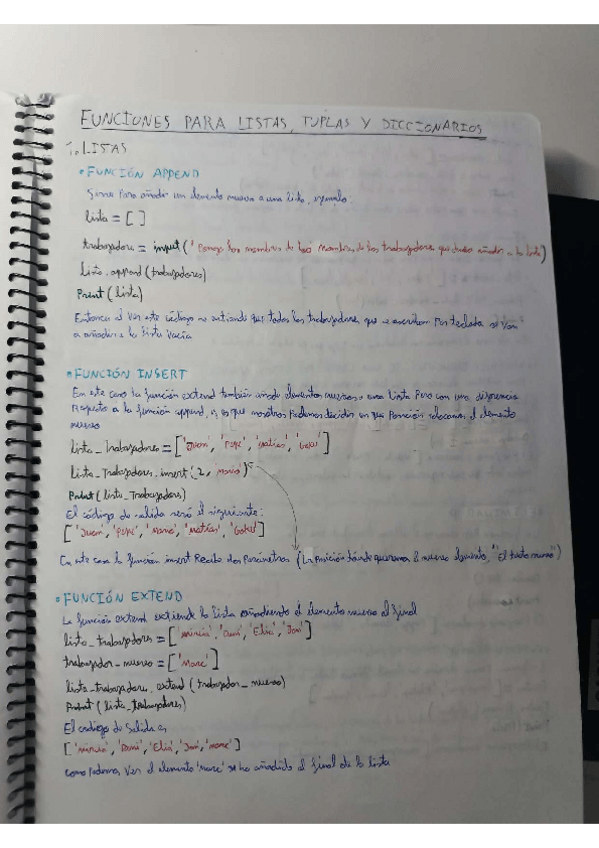 FUNCIONES PARA LISTAS, TUPLAS Y DICCIONARIOS
1. LISTAS
• FUNCIÓN APPEND
Sirve para añadir un elemento nuevo a una lista, ejemplo:
lista = [ ]
trabajadores = input('Ponga los nombres de los nombres de los trabajadores que desea añadir a la lista')
lista.append(trabajadores)
Print(lista)
Entonces al ver este código se entiende que todos los trabajadores que se escriban Por teclado se van
a añadir a la lista vacía
• FUNCIÓN INSERT
En este caso la función extend también añade elementos nuevos a una lista Pero con una diferencia
respecto a la función append, es que nosotros Podemos decidir en que Posición colocamos el elemento
nuevo
lista_trabajadores = ['Juan', 'Pepe', 'Matías', 'Goku']
lista_Trabajadores.insert(2, 'Mario')
Print(lista_Trabajadores)
El código de salida será el siguiente:
['Juan', 'Pepe', 'Mario', 'Matías', 'Goku']
En este caso la función insert Recibe dos Parámetros (La Posición dónde queremos el nuevo elemento, "El texto nuevo")
• FUNCIÓN EXTEND
La función extend extiende la lista añadiendo el elemento nuevo al final
lista_trabajadores = [
trabajador_nuevo = ['Marc']
lista_trabajadores.extend(trabajador_nuevo)
Print(lista_trabajadores)
El codigo de Salida es
como Podemos Ver el elemento 'marc' se ha añadido al final de la lista